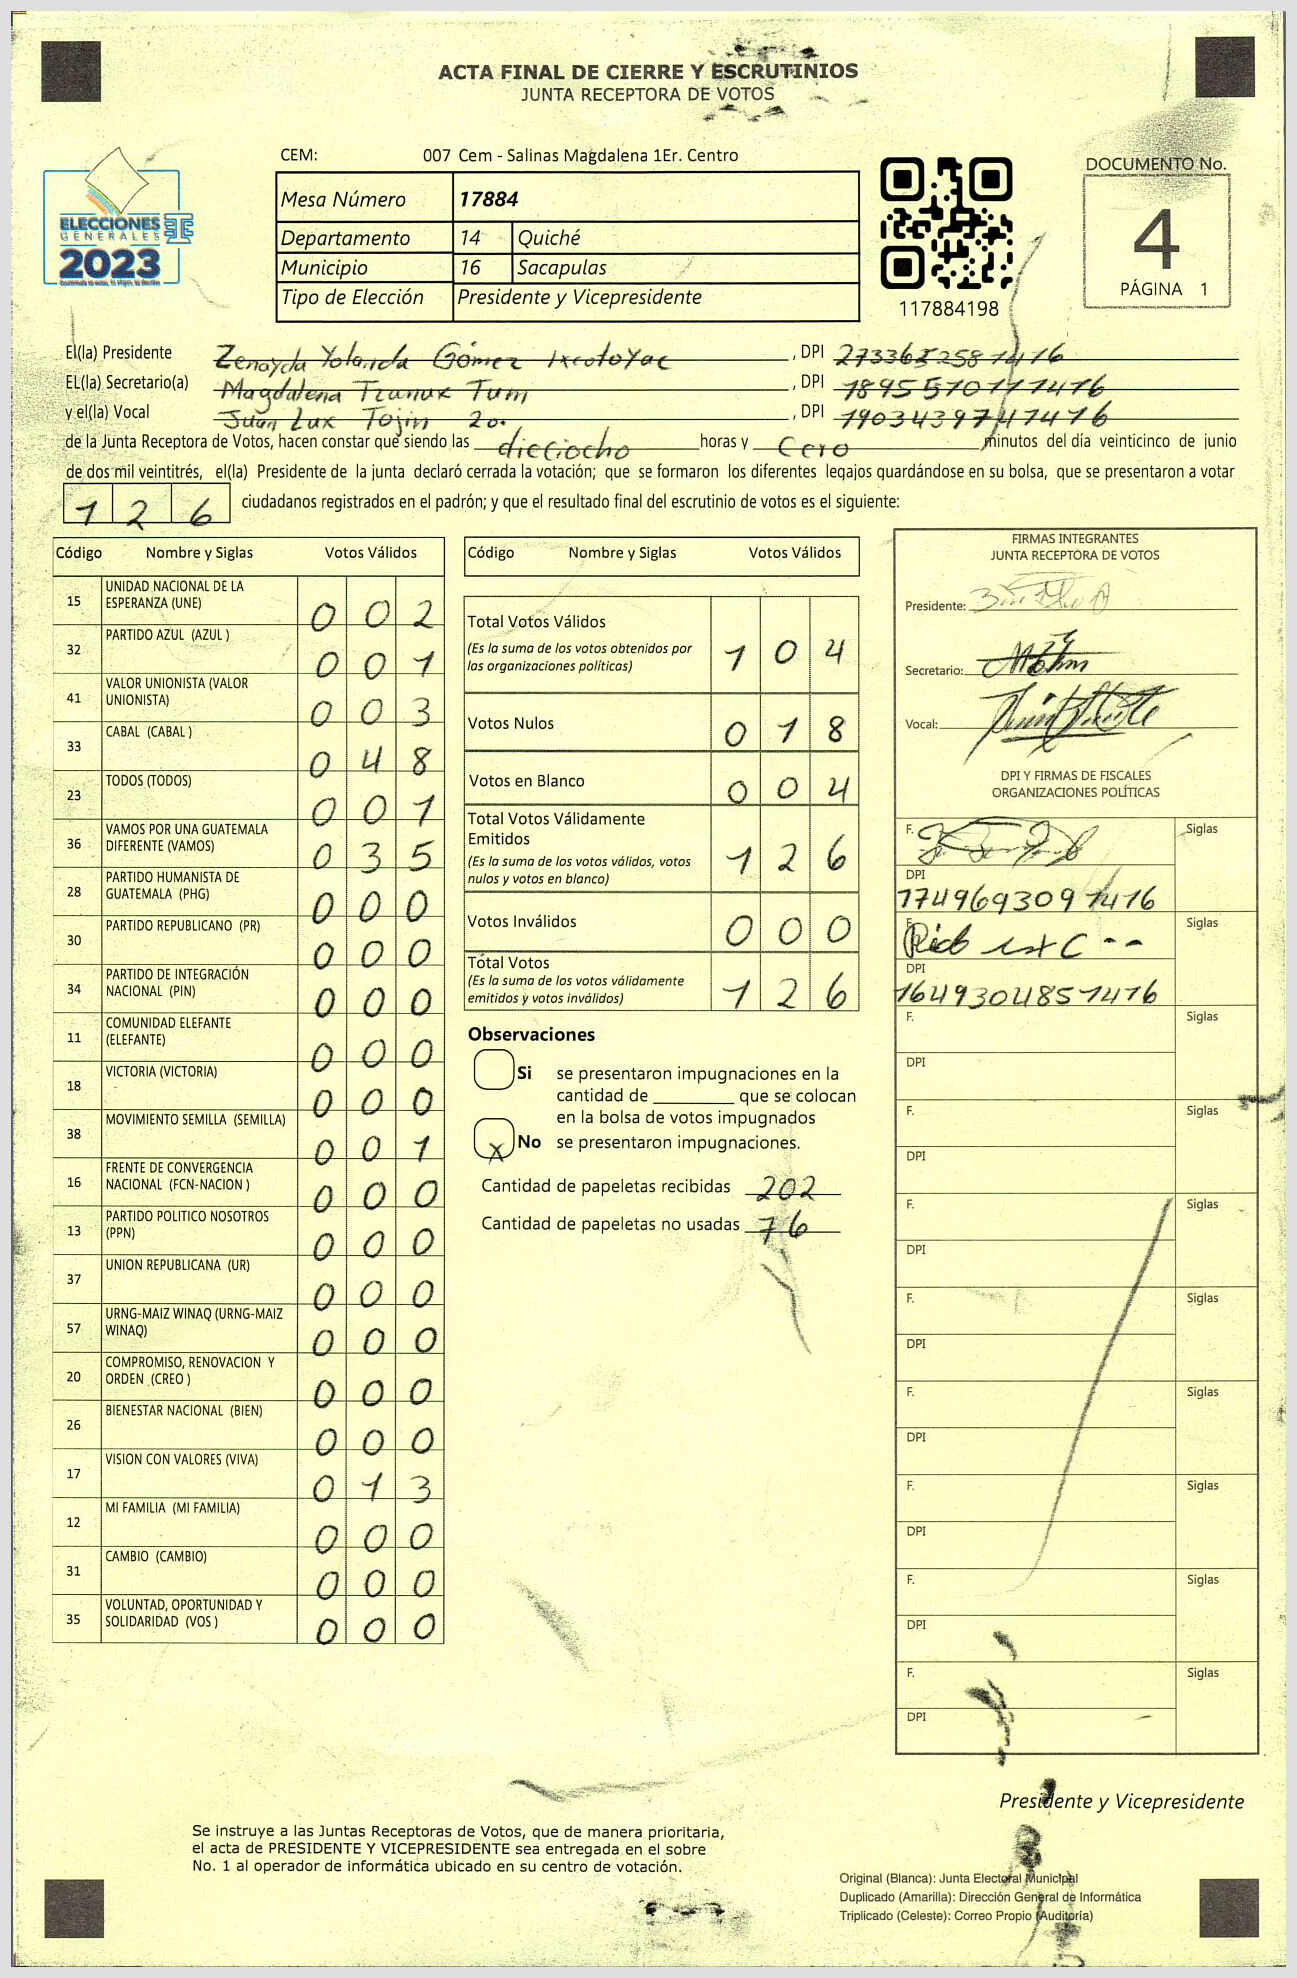 ACTA FINAL DE CIERRE Y ESCRUTINIOS
JUNTA RECEPTORA DE VOTOS
CEM: 007 Cem - Salinas Magdalena 1Er. Centro
DOCUMENTO No.
4
PÁGINA 1
ELECCIONES
GENERALES
2023
Mesa Número 17884
Departamento 14 Quiché
Municipio 16 Sacapulas
Tipo de Elección Presidente y Vicepresidente
117884198
El(la) Presidente Zenayda Yolanda Gómez Ixcotoyac , DPI
EL(la) Secretario(a) Magdalena Tzunux Tum , DPI 1895570111416
y el(la) Vocal Juan Lux Tojin 2o. , DPI 1903439741416
de la Junta Receptora de Votos, hacen constar que siendo las dieciocho horas y Cero minutos del día veinticinco de junio
de dos mil veintitrés, el(la) Presidente de la junta declaró cerrada la votación; que se formaron los diferentes legajos quardándose en su bolsa, que se presentaron a votar
1 2 6 ciudadanos registrados en el padrón; y que el resultado final del escrutinio de votos es el siguiente:
Código Nombre y Siglas Votos Válidos
15 UNIDAD NACIONAL DE LA ESPERANZA (UNE) 0 0 2
32 PARTIDO AZUL (AZUL ) 0 0 1
41 VALOR UNIONISTA (VALOR UNIONISTA) 0 0 3
33 CABAL (CABAL ) 0 4 8
23 TODOS (TODOS) 0 0 1
36 VAMOS POR UNA GUATEMALA DIFERENTE (VAMOS) 0 3 5
28 PARTIDO HUMANISTA DE GUATEMALA (PHG) 0 0 0
30 PARTIDO REPUBLICANO (PR) 0 0 0
34 PARTIDO DE INTEGRACIÓN NACIONAL (PIN) 0 0 0
11 COMUNIDAD ELEFANTE (ELEFANTE) 0 0 0
18 VICTORIA (VICTORIA) 0 0 0
38 MOVIMIENTO SEMILLA (SEMILLA) 0 0 1
16 FRENTE DE CONVERGENCIA NACIONAL (FCN-NACION ) 0 0 0
13 PARTIDO POLITICO NOSOTROS (PPN) 0 0 0
37 UNION REPUBLICANA (UR) 0 0 0
57 URNG-MAIZ WINAQ (URNG-MAIZ WINAQ) 0 0 0
20 COMPROMISO, RENOVACION Y ORDEN (CREO ) 0 0 0
26 BIENESTAR NACIONAL (BIEN) 0 0 0
17 VISION CON VALORES (VIVA) 0 1 3
12 MI FAMILIA (MI FAMILIA) 0 0 0
31 CAMBIO (CAMBIO) 0 0 0
35 VOLUNTAD, OPORTUNIDAD Y SOLIDARIDAD (VOS ) 0 0 0
Código Nombre y Siglas Votos Válidos
Total Votos Válidos 1 0 4
(Es la suma de los votos obtenidos por
las organizaciones políticas)
Votos Nulos 0 1 8
Votos en Blanco 0 0 4
Total Votos Válidamente
Emitidos 1 2 6
(Es la suma de los votos válidos, votos
nulos y votos en blanco)
Votos Inválidos 0 0 0
Total Votos 1 2 6
(Es la suma de los votos válidamente
emitidos y votos inválidos)
Observaciones
Si se presentaron impugnaciones en la
cantidad de ________ que se colocan
en la bolsa de votos impugnados
X No se presentaron impugnaciones.
Cantidad de papeletas recibidas 202
Cantidad de papeletas no usadas 76
FIRMAS INTEGRANTES
JUNTA RECEPTORA DE VOTOS
Presidente:
Secretario:
Vocal:
DPI Y FIRMAS DE FISCALES
ORGANIZACIONES POLÍTICAS
F. Siglas
DPI
1749693091416
F. Siglas
DPI
1649304851416
F. Siglas
DPI
F. Siglas
DPI
F. Siglas
DPI
F. Siglas
DPI
F. Siglas
DPI
F. Siglas
DPI
F. Siglas
DPI
F. Siglas
DPI
Presidente y Vicepresidente
Se instruye a las Juntas Receptoras de Votos, que de manera prioritaria,
el acta de PRESIDENTE Y VICEPRESIDENTE sea entregada en el sobre
No. 1 al operador de informática ubicado en su centro de votación.
Original (Blanca): Junta Electoral Municipal
Duplicado (Amarilla): Dirección General de Informática
Triplicado (Celeste): Correo Propio (Auditoría)